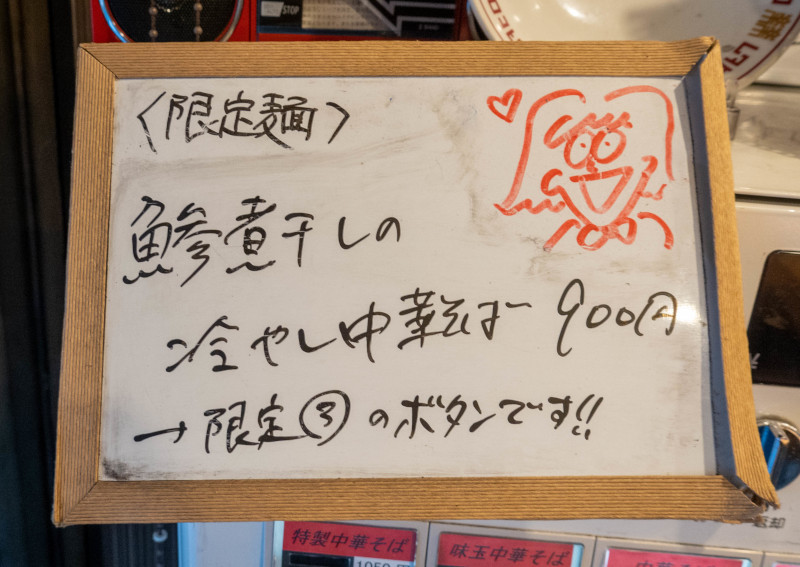 STOP
〈限定麺〉
鯵煮干しの
冷やし中華そば 900円
→限定③のボタンです!!
特製中華そば
味玉中華そば
中華そば